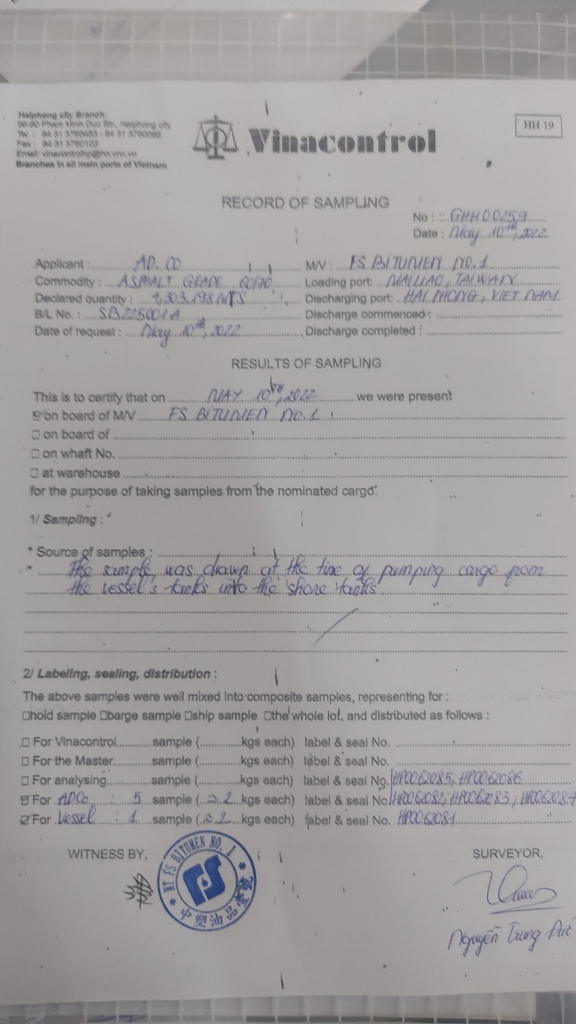 Haiphong city Branch:
Email: vinacontrolhp@hn.vnn.vn
Branches in all main ports of Vietnam
Vinacontrol
HH 19
RECORD OF SAMPLING
No : GHH00259
Date : May 10th, 2022
Applicant : AD. CO
M/V : FS BITUMEN NO.1
Commodity : ASPHALT GRADE 60/70
Loading port: MAILIAO, TAIWAN
Declared quantity : MTS
Discharging port: HAI PHONG, VIET NAM
B/L No. : SB225001A
Discharge commenced :
Date of request : May 10th, 2022
Discharge completed :
RESULTS OF SAMPLING
This is to certify that on MAY 10th, 2022 we were present
on board of M/V FS BITUMEN NO.1
on board of
on whaft No.
at warehouse
for the purpose of taking samples from the nominated cargo.
1/ Sampling :
* Source of samples :
The sample was drawn at the time of pumping cargo from
the vessel's tanks into the shore tanks
2/ Labeling, sealing, distribution :
The above samples were well mixed into composite samples, representing for :
hold sample barge sample ship sample the whole lot, and distributed as follows :
For Vinacontrol sample ( kgs each) label & seal No.
For the Master sample ( kgs each) label & seal No.
For analysing sample ( kgs each) label & seal No. HP0062085, HP0062086
For ADCo : 5 sample ( 2 kgs each) label & seal No. HP0062082, HP0062083, HP0062087
For Vessel : 1 sample ( 2 kgs each) label & seal No. HP0062081
WITNESS BY,
SURVEYOR,
MT FS BITUMEN NO. 1
FS
中塑油品壹號
Nguyễn Trung Đức